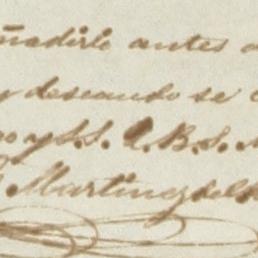 ñadirlo antes
y deseando se
o y S. S. Q. B. S. M
Martinez del